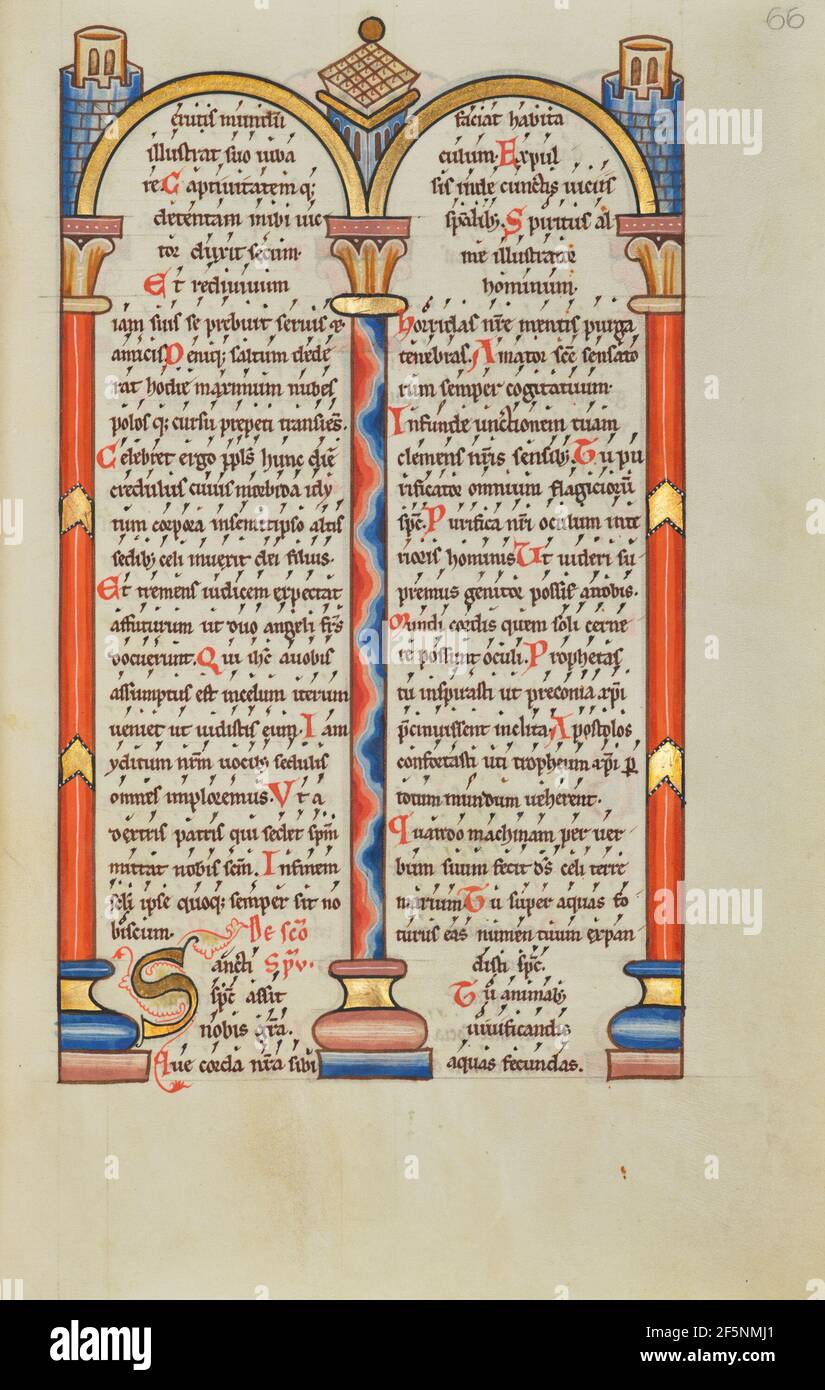 66
crutis mundū
illustrat suo iuba
re. Captiuitatem q;
detentam mibi uic
tor dixit secum.
Et rediuiuum
iam suis se prebuit seruis &
amicis Deniq; saltum dede
rat hodie maximum nubes
polos q; cursu prepeti transiēs.
Celebret ergo ppl̄s hunc diē
credulus cuius morbida idy
tum corpora insemetipso altis
sedib; celi inuexit dei filius.
Et tremens iudicem expectat
affuturum ut duo angeli fr̄s
docuerunt. Qui ihc̄ auobis
assumptus est incelum iterum
ueniet ut uidistis eum. Iam
yditum nrm̄ uocib; sedulis
omnes imploremus. Vt a
dextris patris qui sedet spm̄
mittat nobis scm̄. Infinem
scl̄i ipse quoq; semper sit no
biscum. De sco
Sancti Spu.
spc̄ assit
nobis gr̄a.
Que corda nr̄a sibi
faciat habita
culum. Expul
sis inde cunctis uiciis
sp̄alib; Spiritus al
me illustrator
hominum.
Horridas nr̄e mentis purga
tenebras. Amator sc̄e sensato
rum semper cogitatuum.
Infunde unctionem tuam
clemens nr̄is sensib; Tu pu
rificator omnium flagiciorū
spc̄. Purifica nr̄i oculum inte
rioris hominis Ut uideri su
premus genitor possit anobis.
Mundi cordis quem soli cerne
re possunt oculi. Prophetas
tu inspirasti ut preconia xp̄i
p̄cinuissent inclita. Apostolos
confortasti uti tropheum xp̄i p̱
totum mundum ueherent.
Quando machinam per uer
bum suum fecit ds̄ celi terre
marium Tu super aquas fo
turus eas numen tuum expan
disti spc̄.
Tu animab;
uiuificandis
aquas fecundas.
a alamy
Image ID: 2F5NMJ1
www.alamy.com